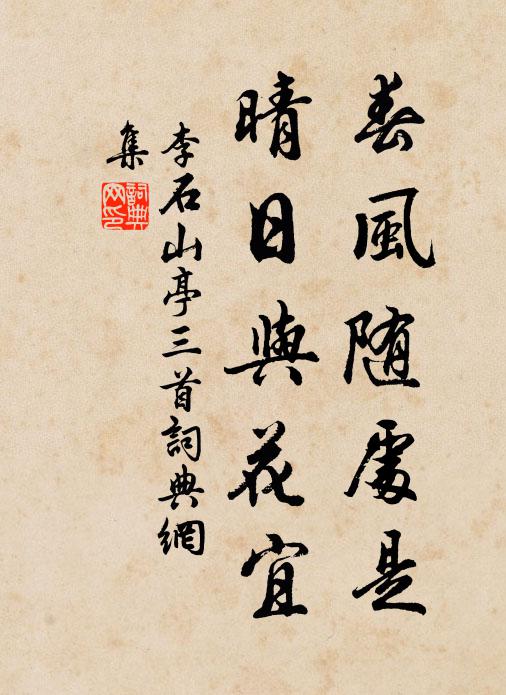 春風随處是
晴日與花宜
李石山亭三首詞典網
集
詞典
网印